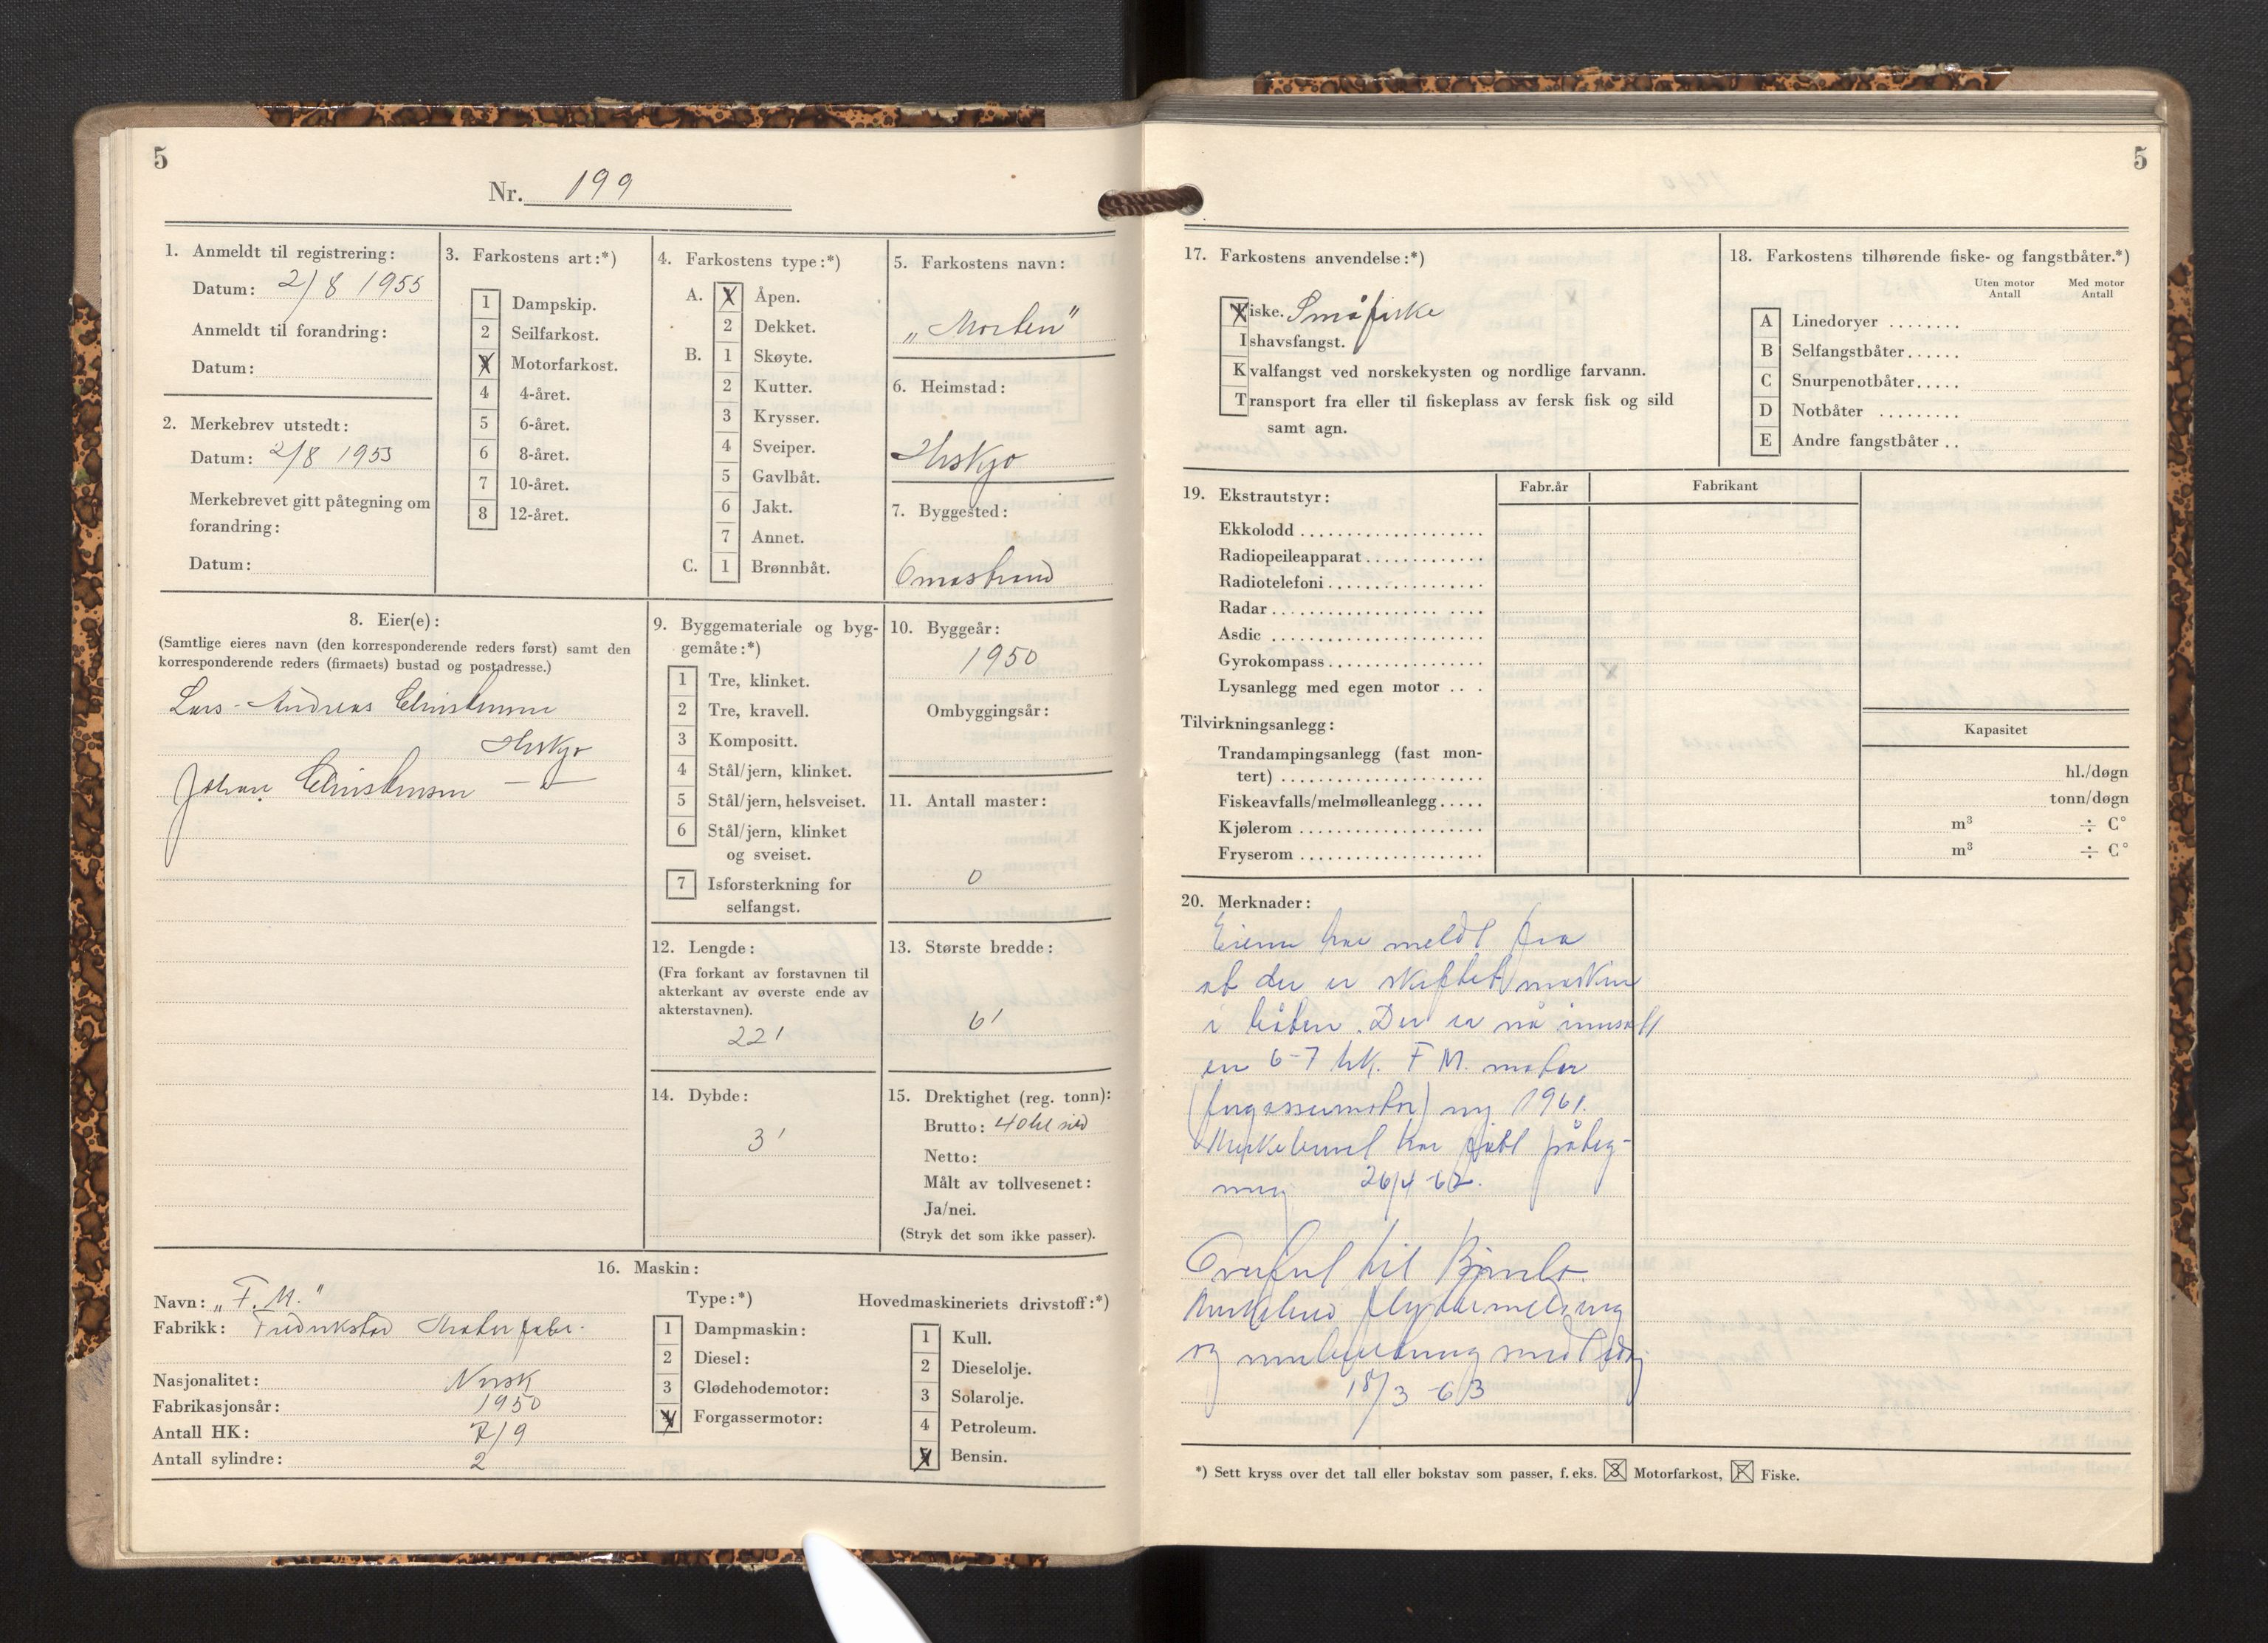 5
Nr. 199
1. Anmeldt til registrering:
Datum: 2/8 1955
Anmeldt til forandring:
Datum:
2. Merkebrev utstedt:
Datum: 2/8 1955
Merkebrevet gitt påtegning om
forandring:
Datum:
3. Farkostens art:*)
1 Dampskip.
2 Seilfarkost.
X Motorfarkost.
4 4-året.
5 6-året.
6 8-året.
7 10-året.
8 12-året.
4. Farkostens type:*)
A. X Åpen.
2 Dekket.
B. 1 Skøyte.
2 Kutter.
3 Krysser.
4 Sveiper.
5 Gavlbåt.
6 Jakt.
7 Annet.
C. 1 Brønnbåt.
5. Farkostens navn:
„Morten"
6. Heimstad:
7. Byggested:
Omastrand
8. Eier(e):
(Samtlige eieres navn (den korresponderende reders først) samt den
korresponderende reders (firmaets) bustad og postadresse.)
Lars-Andreas Christensen
Johan Christensen
9. Byggemateriale og byg-
gemåte:*)
1 Tre, klinket.
2 Tre, kravell.
3 Kompositt.
4 Stål/jern, klinket.
5 Stål/jern, helsveiset.
6 Stål/jern, klinket
og sveiset.
7 Isforsterkning for
selfangst.
10. Byggeår:
1950
Ombyggingsår:
11. Antall master:
0
12. Lengde:
(Fra forkant av forstavnen til
akterkant av øverste ende av
akterstavnen).
22'
13. Største bredde:
6'
14. Dybde:
3'
15. Drektighet (reg. tonn):
Brutto: 40 hl sild
Netto:
Målt av tollvesenet:
Ja/nei.
(Stryk det som ikke passer).
16. Maskin:
Navn: „F. M."
Fabrikk: Fredrikstad Motorfabr.
Nasjonalitet: Norsk
Fabrikasjonsår: 1950
Antall HK: 7/9
Antall sylindre: 2
Type:*)
1 Dampmaskin:
2 Diesel:
3 Glødehodemotor:
X Forgassermotor:
Hovedmaskineriets drivstoff:*)
1 Kull.
2 Dieselolje.
3 Solarolje.
4 Petroleum.
X Bensin.
5
17. Farkostens anvendelse:*)
Fiske. Småfiske
Ishavsfangst.
Kvalfangst ved norskekysten og nordlige farvann.
Transport fra eller til fiskeplass av fersk fisk og sild
samt agn.
18. Farkostens tilhørende fiske- og fangstbåter.*)
Uten motor Med motor
Antall Antall
A Linedoryer ........
B Selfangstbåter......
C Snurpenotbåter.....
D Notbåter .........
E Andre fangstbåter ..
19. Ekstrautstyr:
Fabr.år Fabrikant
Ekkolodd
Radiopeileapparat
Radiotelefoni
Radar
Asdic
Gyrokompass
Lysanlegg med egen motor
Tilvirkningsanlegg:
Kapasitet
Trandampingsanlegg (fast mon-
tert) hl./døgn
Fiskeavfalls/melmølleanlegg tonn/døgn
Kjølerom m³ ÷ C°
Fryserom m³ ÷ C°
20. Merknader:
Eieren har meldt fra
at der er skiftet maskin
i båten. Der er nå innsatt
en 6-7 hk. F M. motor
(forgassermotor) ny 1961.
Merkebrevet har fått påteg-
ning 26/4-62.
Overført til Bømlo.
Merkebrev flyttemelding
og innberetning sendt idag
18/3-63
*) Sett kryss over det tall eller bokstav som passer, f. eks. 3 Motorfarkost, F Fiske.